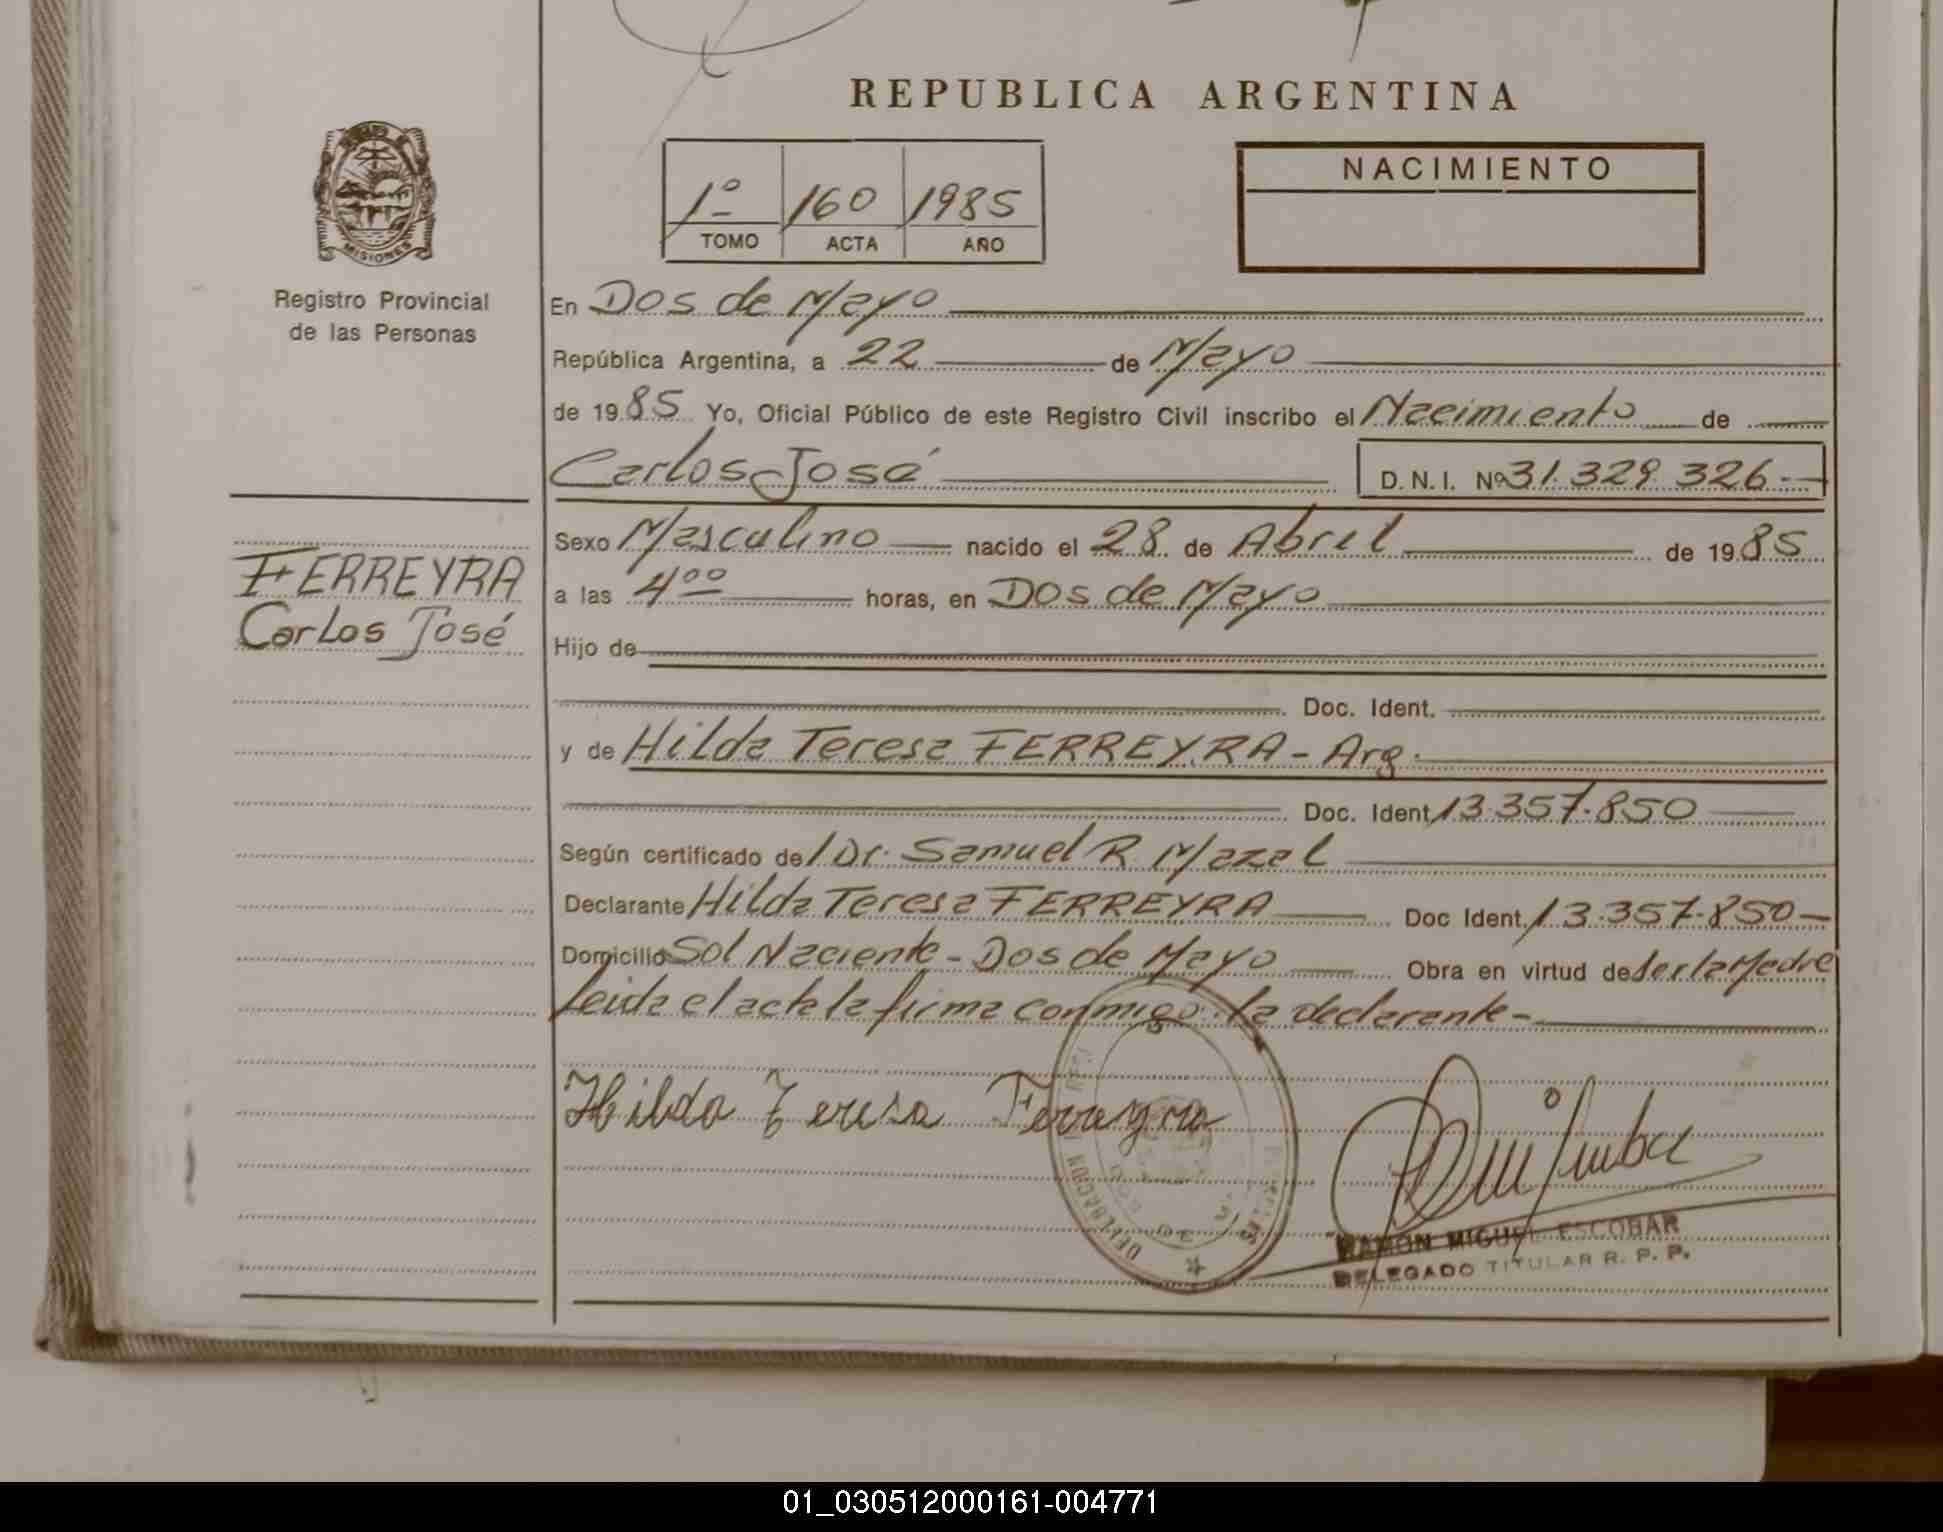 REPUBLICA ARGENTINA
1º 160 1985
TOMO ACTA AÑO
NACIMIENTO
MISIONES
Registro Provincial
de las Personas
FERREYRA
Carlos José
En Dos de Mayo
República Argentina, a 22 de Mayo
de 1985 Yo, Oficial Público de este Registro Civil inscribo el Nacimiento de
Carlos José D.N.I. Nº 31.329.326.-
Sexo Masculino nacido el 28 de Abril de 1985
a las 4⁰⁰ horas, en Dos de Mayo
Hijo de
Doc. Ident.
y de Hilda Teresa FERREYRA - Arg.
Doc. Ident. 13.357.850
Según certificado del Dr. Samuel R. Mazal
Declarante Hilda Teresa FERREYRA Doc Ident. 13.357.850-
Domicilio Sol Naciente - Dos de Mayo Obra en virtud de ser la Madre
Leida el acta la firma conmigo la declarante-.
Hilda Teresa Ferreyra
DELEGACION
RAMON MIGUEL ESCOBAR
DELEGADO TITULAR R. P. P.
01_030512000161-004771